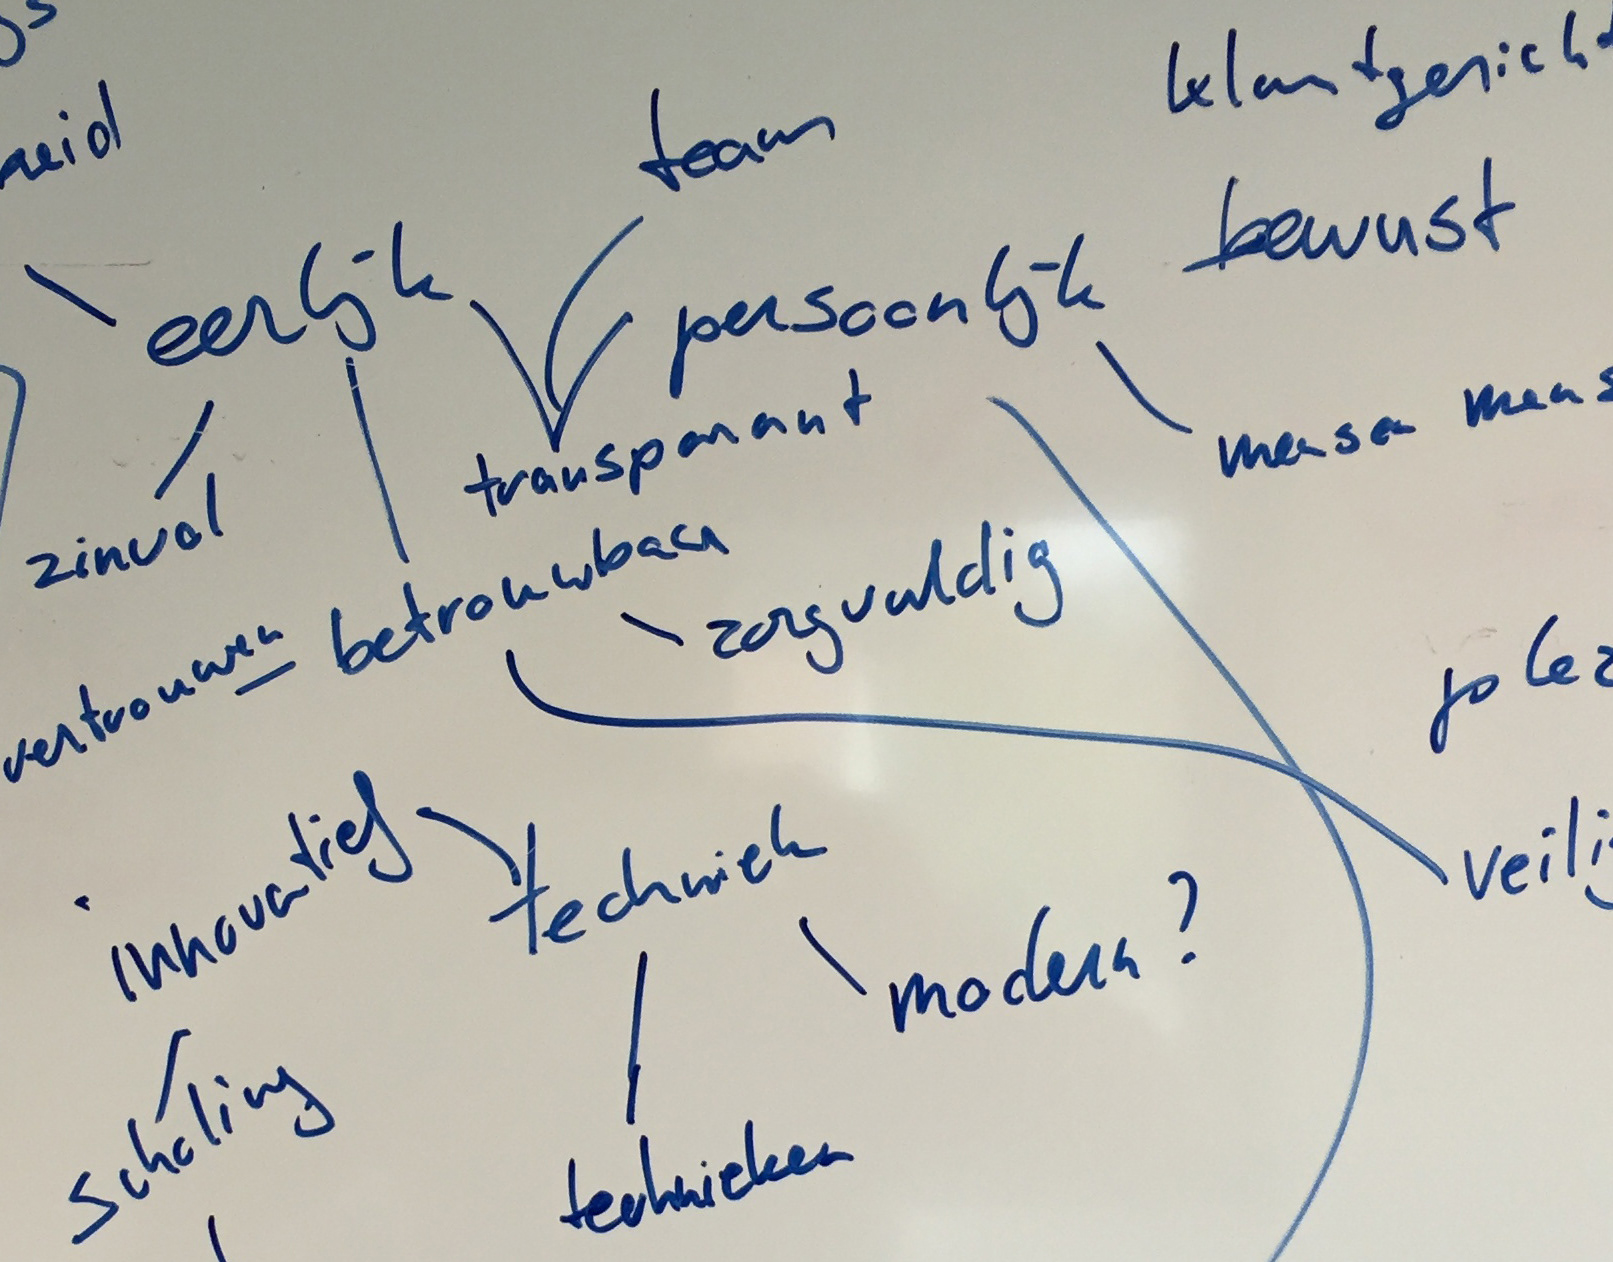 klantgericht
team
bewust
eerlijk
persoonlijk
transparant
mensen mens
zinvol
betrouwbaar
zorgvuldig
vertrouwen
innovatief
techniek
veilig
modern?
scholing
technieken